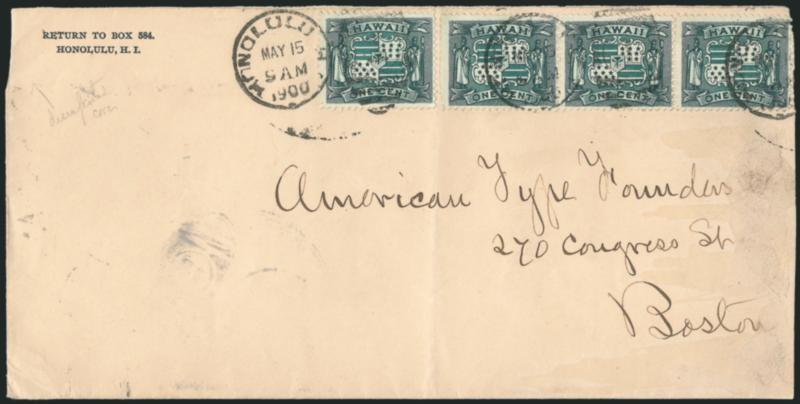 RETURN TO BOX 584.
HONOLULU, H. I.
HONOLULU
MAY 15
9 AM
1900
HAWAII
ONE CENT
HAWAII
ONE CENT
HAWAII
ONE CENT
HAWAII
ONE CENT
cover
American Type Founders
270 Congress St
Boston